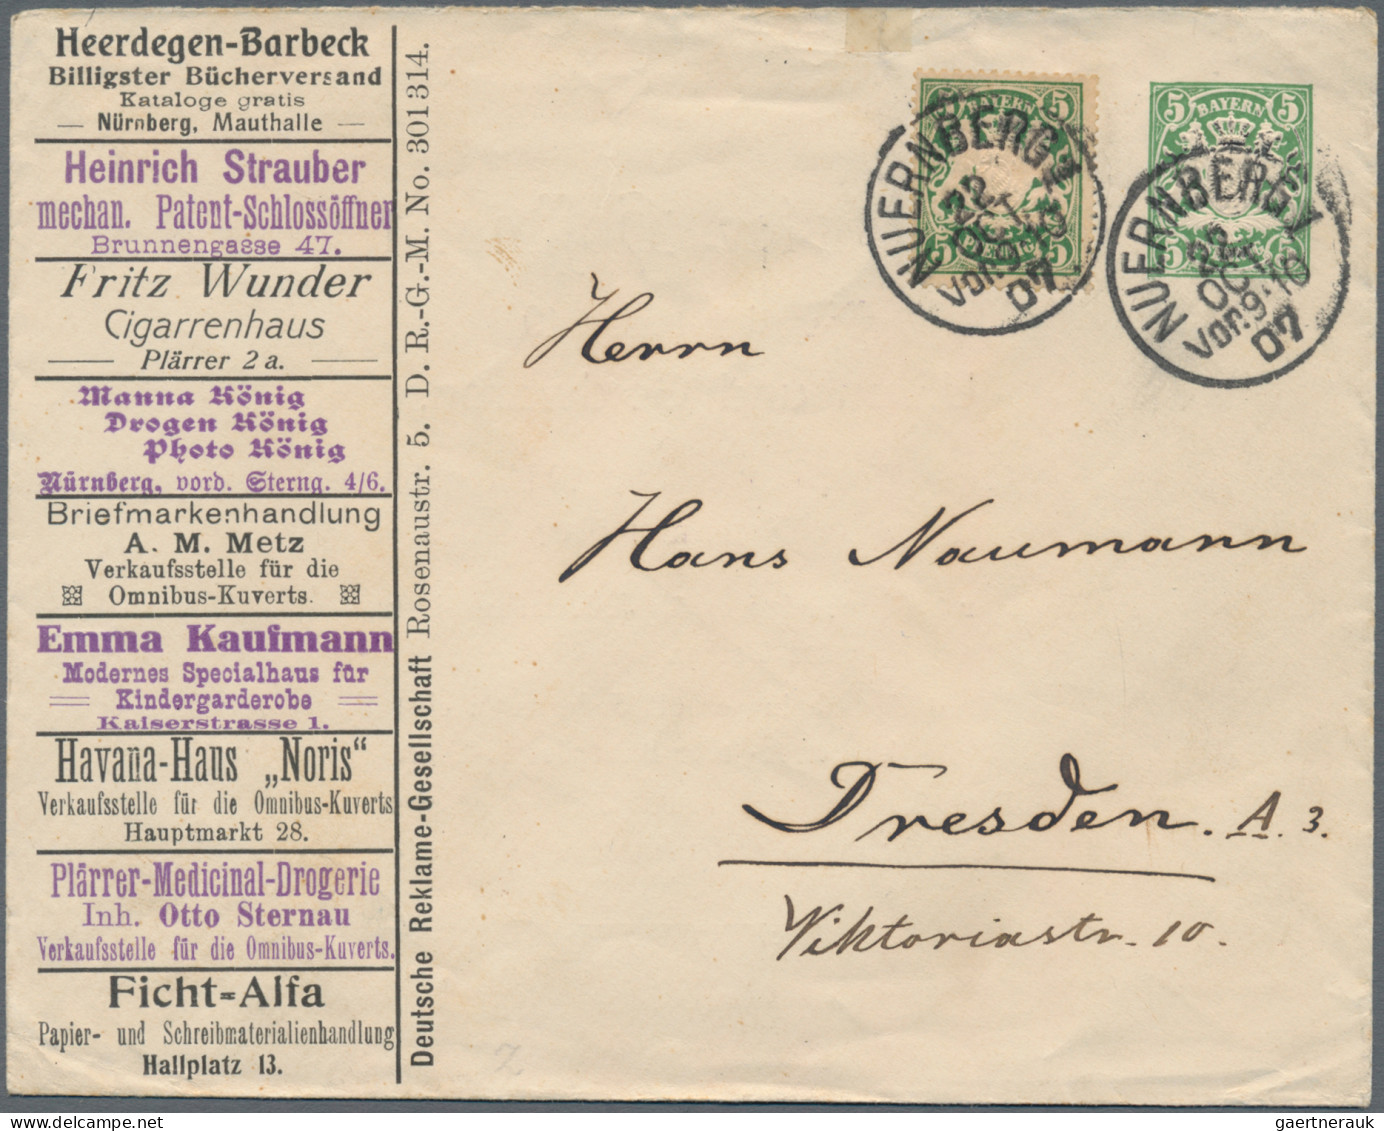 Heerdegen-Barbeck
Billigster Bücherversand
Kataloge gratis
— Nürnberg, Mauthalle —
Heinrich Strauber
mechan. Patent-Schlossöffner
Brunnengasse 47.
Fritz Wunder
Cigarrenhaus
Plärrer 2 a.
Manna König
Drogen König
Photo König
Nürnberg, vord. Sterng. 4/6.
Briefmarkenhandlung
A. M. Metz
Verkaufsstelle für die
Omnibus-Kuverts.
Emma Kaufmann
Modernes Specialhaus für
Kindergarderobe
Kaiserstrasse 1.
Havana-Haus „Noris“
Verkaufsstelle für die Omnibus-Kuverts
Hauptmarkt 28.
Plärrer-Medicinal-Drogerie
Inh. Otto Sternau
Verkaufsstelle für die Omnibus-Kuverts.
Ficht-Alfa
Papier- und Schreibmaterialienhandlung
Hallplatz 13.
Deutsche Reklame-Gesellschaft Rosenaustr. 5. D. R.-G.-M. No. 301314.
5 BAYERN 5
5 PFENNIG 5
NUERNBERG
22 OKT
Vor. 9-10
07
5 BAYERN 5
5 5
NUERNBERG 1
22 OKT
Vor. 9-10
07
Herrn
Hans Naumann
Dresden. A. 3.
Viktoriastr. 10.
gaertnerauk